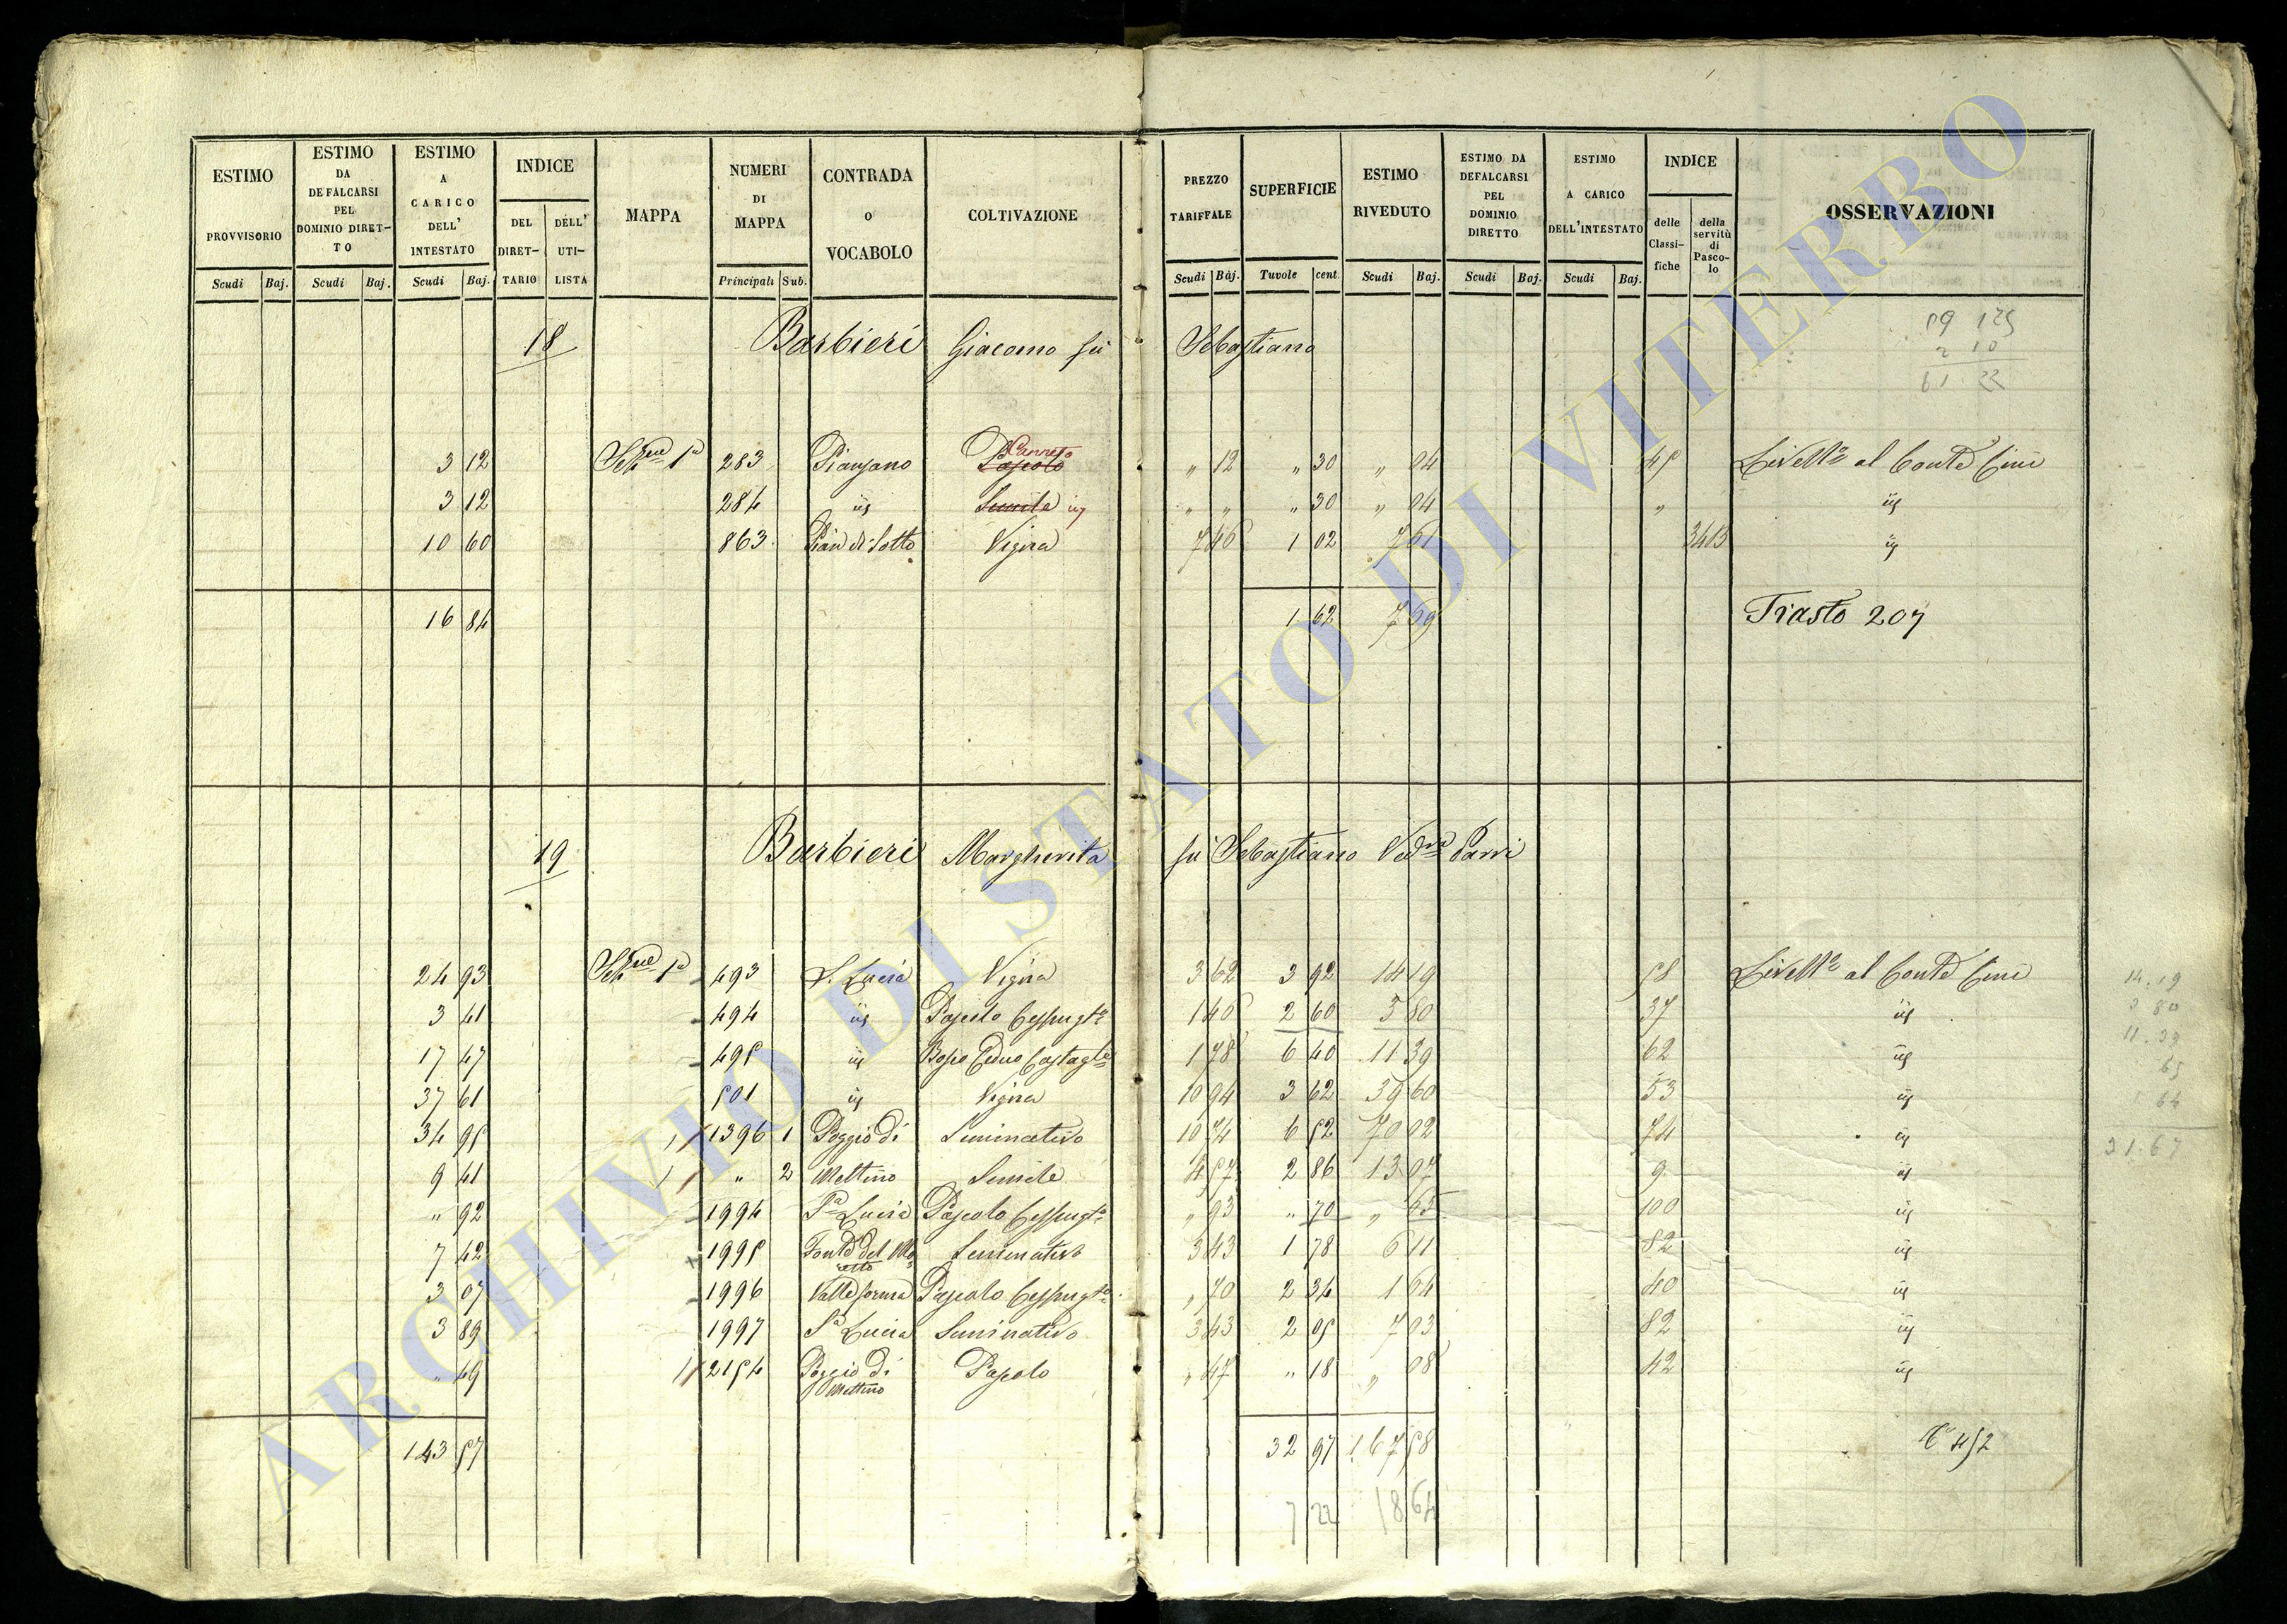 ESTIMO PROVVISORIO Scudi Baj.
ESTIMO DA DEFALCARSI PEL DOMINIO DIRET-TO Scudi Baj.
ESTIMO A CARICO DELL' INTESTATO Scudi Baj.
INDICE DEL DIRET-TARIO DELL' UTI-LISTA
MAPPA
NUMERI DI MAPPA Principali Sub.
CONTRADA O VOCABOLO
COLTIVAZIONE
PREZZO TARIFFALE Scudi Baj.
SUPERFICIE Tavole cent.
ESTIMO RIVEDUTO Scudi Baj.
ESTIMO DA DEFALCARSI PEL DOMINIO DIRETTO Scudi Baj.
ESTIMO A CARICO DELL'INTESTATO Scudi Baj.
INDICE delle Classi-fiche della servitù di Pasco-lo
OSSERVAZIONI
18 Barbieri Giacomo fu Sebastiano
61.22
3 12 283 Pianzano Pascolo Canneto " 12 " 30 " 04 45 Livell° al Conte Cini
3 12 284 id " " " 30 " 04 " id
10 60 863 Pian di Sotto Vigna 7 46 1 02 7 61 id
16 84 1 62 7 69 Trasto 207
19 Barbieri Margherita fu Sebastiano Ved.va Parri
24 93 493 S. Lucia Vigna 3 62 3 92 14 19 58 Livell° al Conte Cini 14.19
3 41 494 id Pascolo Cespugt° 1 46 2 60 3 80 37 id 3 80
17 47 495 id Bosco Ceduo Castagle 1 78 6 40 11 39 62 id 11.39
37 61 501 id Vigna 10 94 3 62 39 60 53 id 65
34 95 1396 1 Poggio di Seminativo 10 74 6 52 70 02 74 id 1 64
9 41 " 2 Mettino 4 57 2 86 13 07 9 id 31.67
" 92 1994 S.a Lucia Pascolo Cespugt° " 93 " 70 " 65 100 id
7 42 1995 Seminativo 3 43 1 78 6 11 82 id
3 07 1996 Pascolo Cespugt° " 70 2 34 1 64 40 id
3 89 1997 S.a Lucia Seminativo 3 43 2 05 7 03 82 id
" 49 2154 Poggio di Mettino Pascolo " 47 " 18 " 08 42 id
143 57 32 97 167 58
7 22 18 64
ARCHIVIO DI STATO DI VITERBO